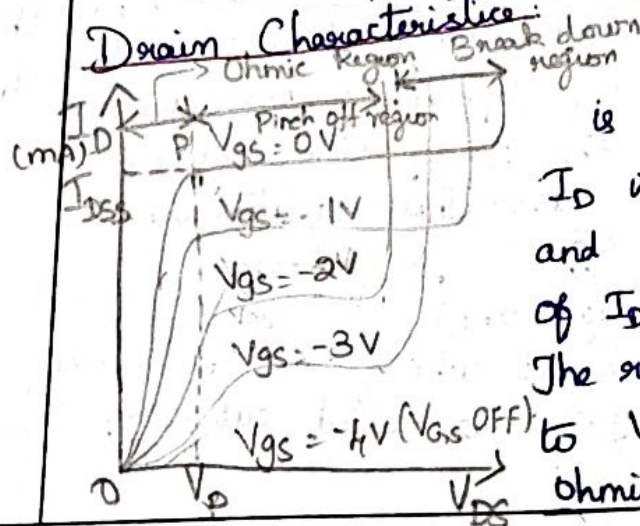 Drain Characteristics:
Ohmic Region
Break down
region
I_D
(mA)
P
Pinch off region
Vgs = 0V
I_DSS
Vgs = -1V
Vgs = -2V
Vgs = -3V
Vgs = -4V (VGS OFF)
O
V_P
V_DS
is
I_D
and
of I_D
The
to V
ohmi